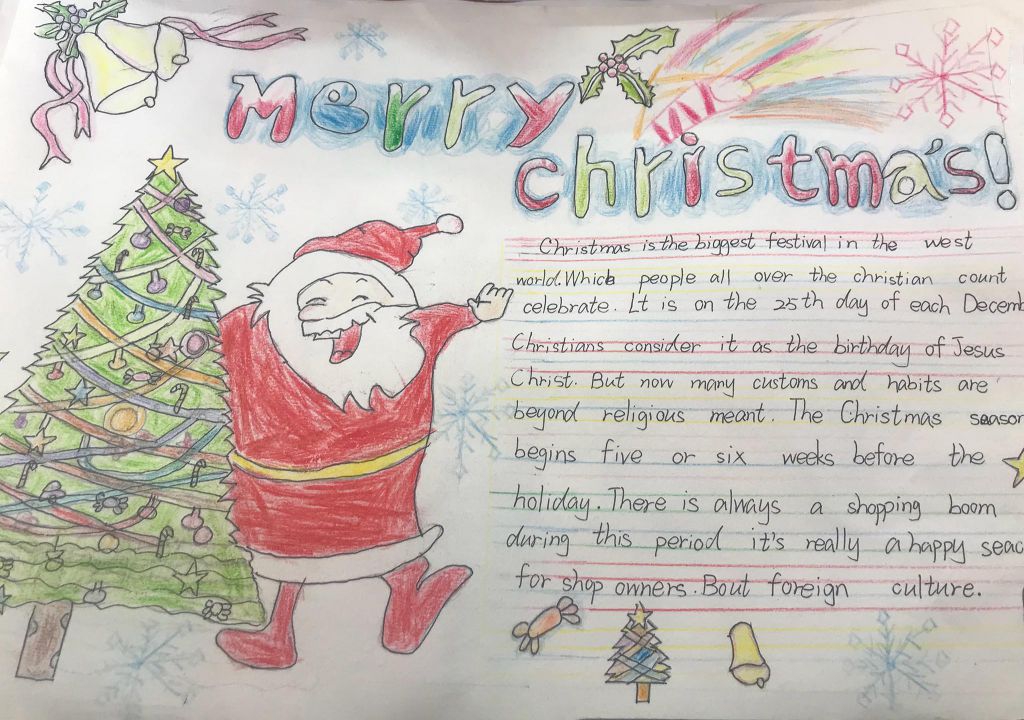 Merry
christma's!
Christmas is the biggest festival in the west
world. Which people all over the christian count
celebrate. Lt is on the 25th day of each Decemb
Christians consider it as the birthday of Jesus
Christ. But now many customs and habits are
beyond religious meant. The Christmas season
begins five or six weeks before the
holiday. There is always a shopping boom
during this period it's really a happy seac
for shop owners. Bout foreign culture.